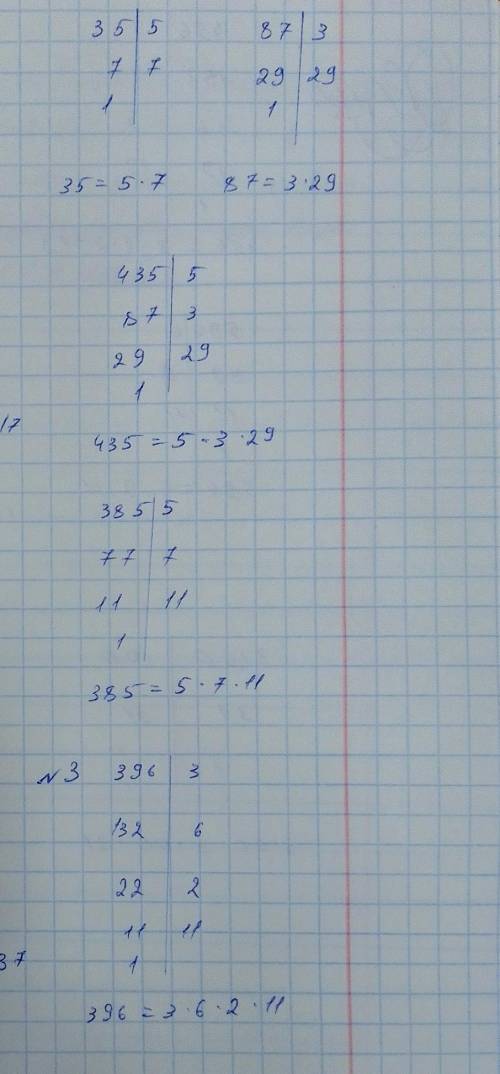 35 | 5    87 | 3
7 | 7    29 | 29
1 |    1 |
35 = 5 · 7    87 = 3 · 29
435 | 5
87 | 3
29 | 29
1 |
17
435 = 5 · 3 · 29
385 | 5
77 | 7
11 | 11
1 |
385 = 5 · 7 · 11
№3    396 | 3
132 | 6
22 | 2
11 | 11
37    1 |
396 = 3 · 6 · 2 · 11